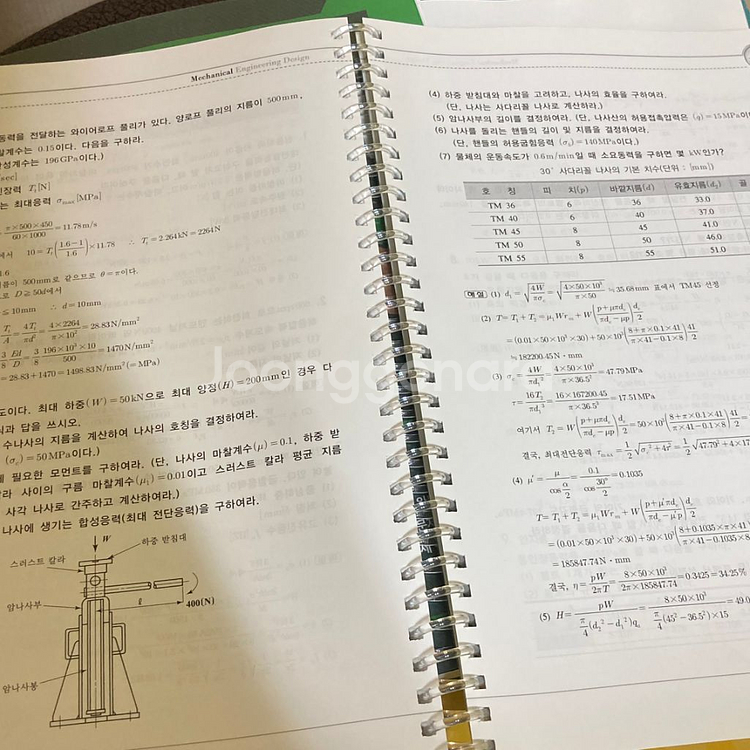 Mechanical Engineering Design
동력을 전달하는 와이어로프 풀리가 있다. 양로프 풀리의 지름이 500mm,
찰계수는 0.15이다. 다음을 구하라.
탄성계수는 196GPa이다.)
sec]
긴장력 T₁[N]
는 최대응력 σmax[MPa]
= π×500×450/60×1000 = 11.78m/s
에서 10=T₁(1.6−1/1.6)×11.78 ∴ T₁=2.264kN=2264N
1.6
지름이 500mm로 같으므로 θ=π이다.
로 D≥50d에서
≤10mm ∴ d=10mm
T₁/A = 4T₁/πd² = 4×2264/π×10² = 28.83N/mm²
3/8 Ed/D = 3/8 196×10³×10/500 = 1470N/mm²
= 28.83+1470=1498.83N/mm²(=MPa)
도이다. 최대 하중(W)=50kN으로 최대 양정(H)=200mm인 경우 다
식과 답을 쓰시오.
수나사의 지름을 계산하여 나사의 호칭을 결정하여라.
(σc)=50MPa이다.)
에 필요한 모먼트를 구하여라. (단, 나사의 마찰계수(μ)=0.1, 하중 받
라 사이의 구름 마찰계수(μ₁)=0.01이고 스러스트 칼라 평균 지름
사각 나사로 간주하고 계산하여라.)
나사에 생기는 합성응력(최대 전단응력)을 구하여라.
W
하중 받침대
스러스트 칼라
암나사부
ℓ
400(N)
암나사봉
(4) 하중 받침대와 마찰을 고려하고, 나사의 효율을 구하여라.
(단, 나사는 사다리꼴 나사로 계산하라.)
(5) 암나사부의 길이를 결정하여라. (단, 나사산의 허용접촉압력은 (q)=15MPa이
(6) 나사를 돌리는 핸들의 길이 및 지름을 결정하여라.
(단, 핸들의 허용굽힘응력 (σb)=140MPa이다.)
(7) 물체의 운동속도가 0.6m/min일 때 소요동력을 구하면 몇 kW인가?
30° 사다리꼴 나사의 기본 치수(단위 : mm)
호 칭 피 치(p) 바깥지름(d) 유효지름(d₂) 골
TM 36 6 36 33.0
TM 40 6 40 37.0
TM 45 8 45 41.0
TM 50 8 50 46.0
TM 55 8 55 51.0
해설 (1) d₁=√(4W/πσc)=√(4×50×10³/π×50)≒35.68mm 표에서 TM45 선정
(2) T=T₁+T₂=μ₁Wrm+W(p+μπde/πde−μp)de/2
=(0.01×50×10³×30)+50×10³(8+π×0.1×41/π×41−0.1×8)41/2
≒182200.45N·mm
(3) σc=4W/πd₁²=4×50×10³/π×36.5²=47.79MPa
τ=16T₂/πd₁³=16×167200.45/π×36.5³=17.51MPa
여기서 T₂=W(p+μπde/πde−μp)de/2=50×10³(8+π×0.1×41/π×41−0.1×8)41/2=
결국, 최대전단응력 τmax=1/2√(σc²+4τ²)=1/2√(47.79²+4×17
(4) μ′=μ/cos α/2=0.1/cos 30°/2=0.1035
T=T₁+T₂=μ₁Wrm+W(p+μ′πde/πde−μ′p)de/2
=(0.01×50×10³×30)+50×10³(8+0.1035×π×41/π×41−0.1035×8
=185847.74N·mm
결국, η=pW/2πT=8×50×10³/2π×185847.74=0.3425=34.25%
(5) H=pW/π/4(d₂²−d₁²)qa=8×50×10³/π/4(45²−36.5²)×15=49.0